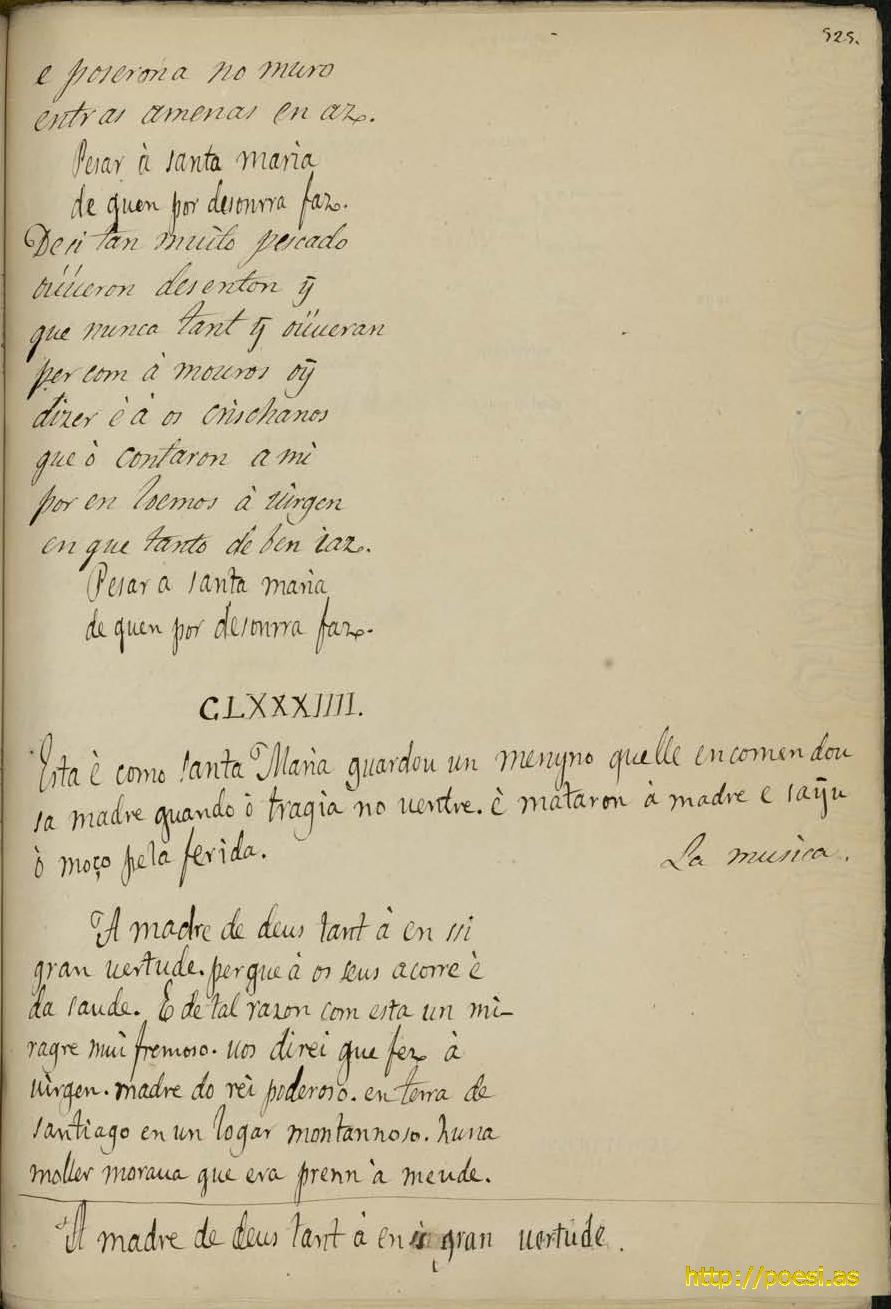 525.
e poserona no muro
entras amenas en az.
Pesar à santa maria
de quen por desonrra faz.
Desi tan muito pescado
oúúeron des enton ỹ
que nunca tant ỹ oúúeran
per com à mouros oỹ
dizer è à os crischanos
que ò contaron a mi
por en loemos à uirgen
en que tanto de ben iaz.
Pesar a santa maria
de quen por desonrra faz.
CLXXXIIII.
Esta è como santa Maria guardou un menyno quelle encomendou
sa madre quando ò tragia no uentre. è mataron à madre e saỹu
ò moço pela ferida.
La musica.
A madre de deus tant à en ssi
gran uertude. per que à os seus acorre è
da saude. E de tal razon com esta un mi-
ragre mui fremoso. uos direi que fez à
uirgen. madre do rei poderoso. en terra de
santiago en un logar montannoso. huna
moller moraua que era prenn à meude.
A madre de deus tant à en si gran uertude.
http://poesi.as